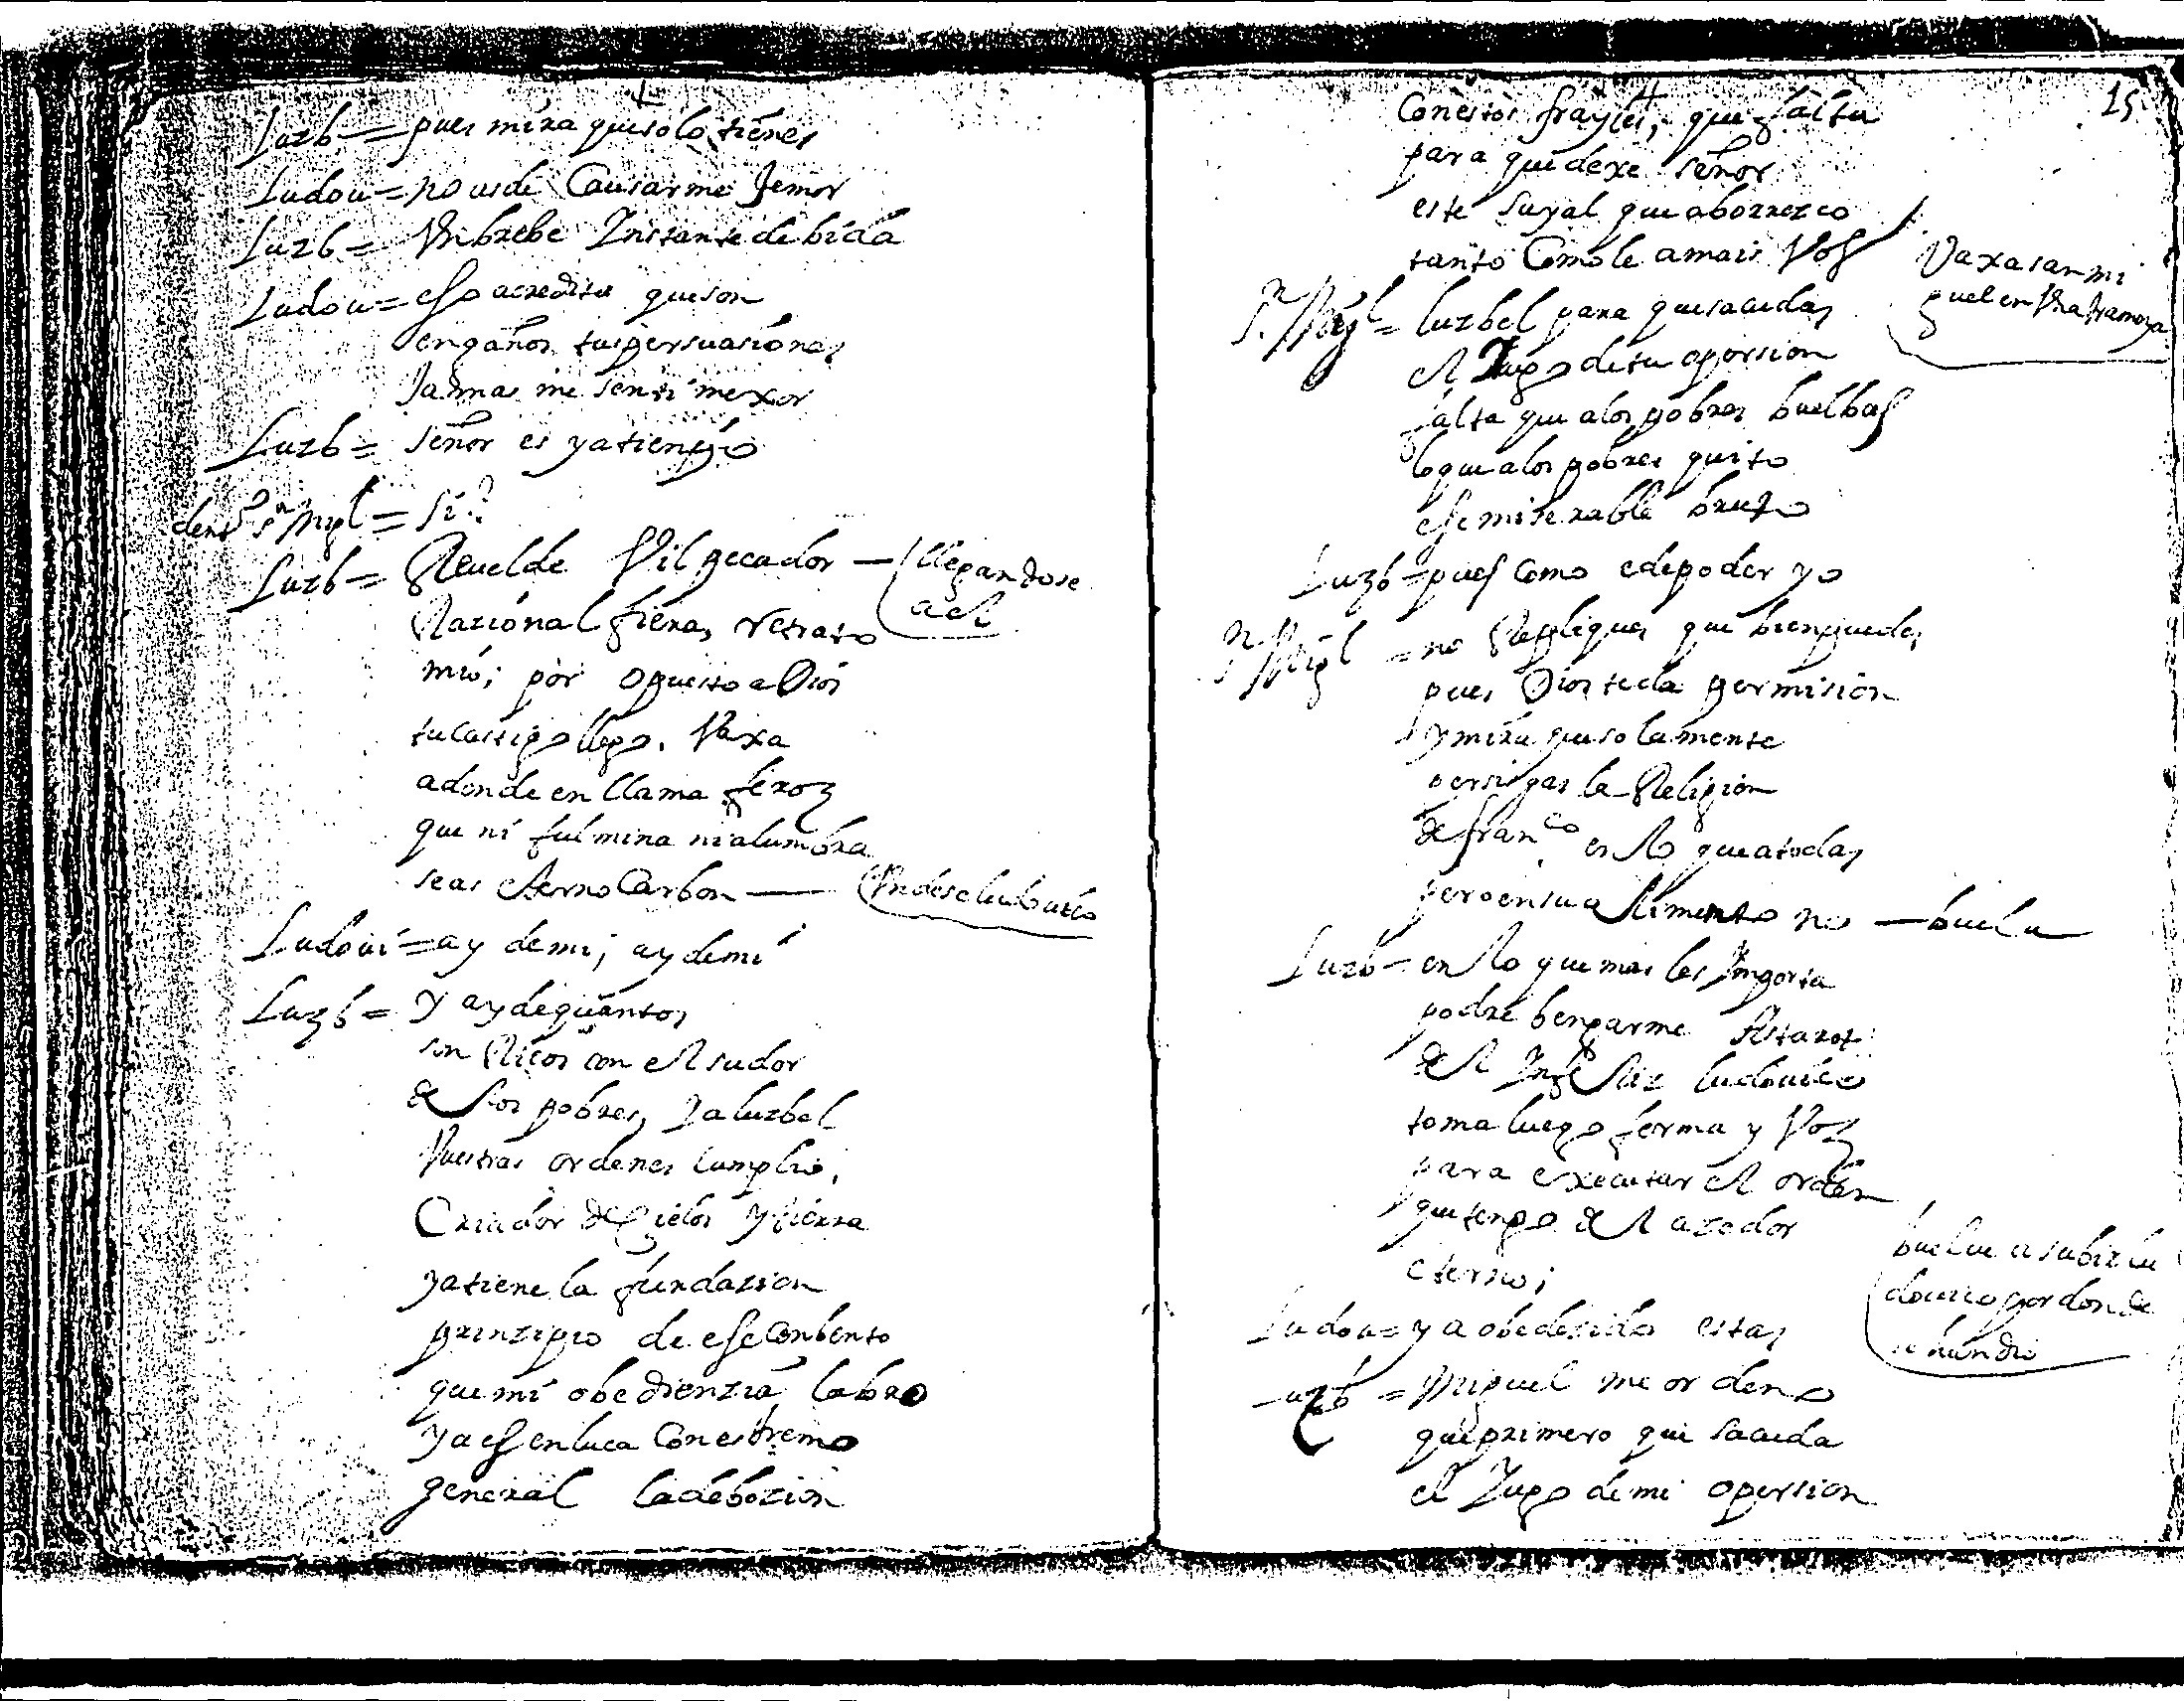 Luzb = pues mira que solo tienes
Ludou = no as de Causarme temor
Luzb = Vn brebe Instante de bida
Ludou = eso acredita que son
engaños tus persuasiones
Jamas me senti mexor
Luzb = señor es ya tiempo
dent° sn Migl = si?
Luzb = Reuelde Vil pecador — llegandose
a el
Razional fiera, retrato
mio; por opuesto a Dios
tu castigo llego. Vaxa
adonde en llama feroz
que ni fulmina ni alumbra
seas eterno Carbon — Vndese ludouico
Ludoui = ay de mi; ay de mi
Luzb = y ay de quantos
son Ricos con el sudor
de los pobres, ya luzbel
Vuestras ordenes cumplio,
Criador de Cielos y tierra
ya tiene la fundazion
prinzipio de ese Conbento
que mi obedienzia labro
ya es en luca Con estremo
general la debozion
15
Con estos frayles, que falta
para que dexe señor
este sayal que aborrezco
tanto Como le amais Vos
Vaxa san mi
guel en Vna tramoya
Sn Migl = luzbel para que sacudas
el Iugo de tu opresion
falta que a los pobres buelbas
lo que a los pobres quito
ese miserable bruto
Luzb = pues como e de poder yo
sn Migl = no Repliques que bien puedes
pues Dios te da permision
y mira que solamente
persigas la Religion
de franco en lo que a todas
pero en su alimento no — buela
Luzb = en lo que mas les Importa
podre bengarme Astarot
del Infeliz ludouico
toma luego forma y Voz
para executar el orden
que tengo del azedor
eterno;
buelue a subir lu
douico por donde
se hundio
Ludou = ya obedesido estas
Luzb = Miguel me ordeno
que primero que sacuda
el Iugo de mi opersion